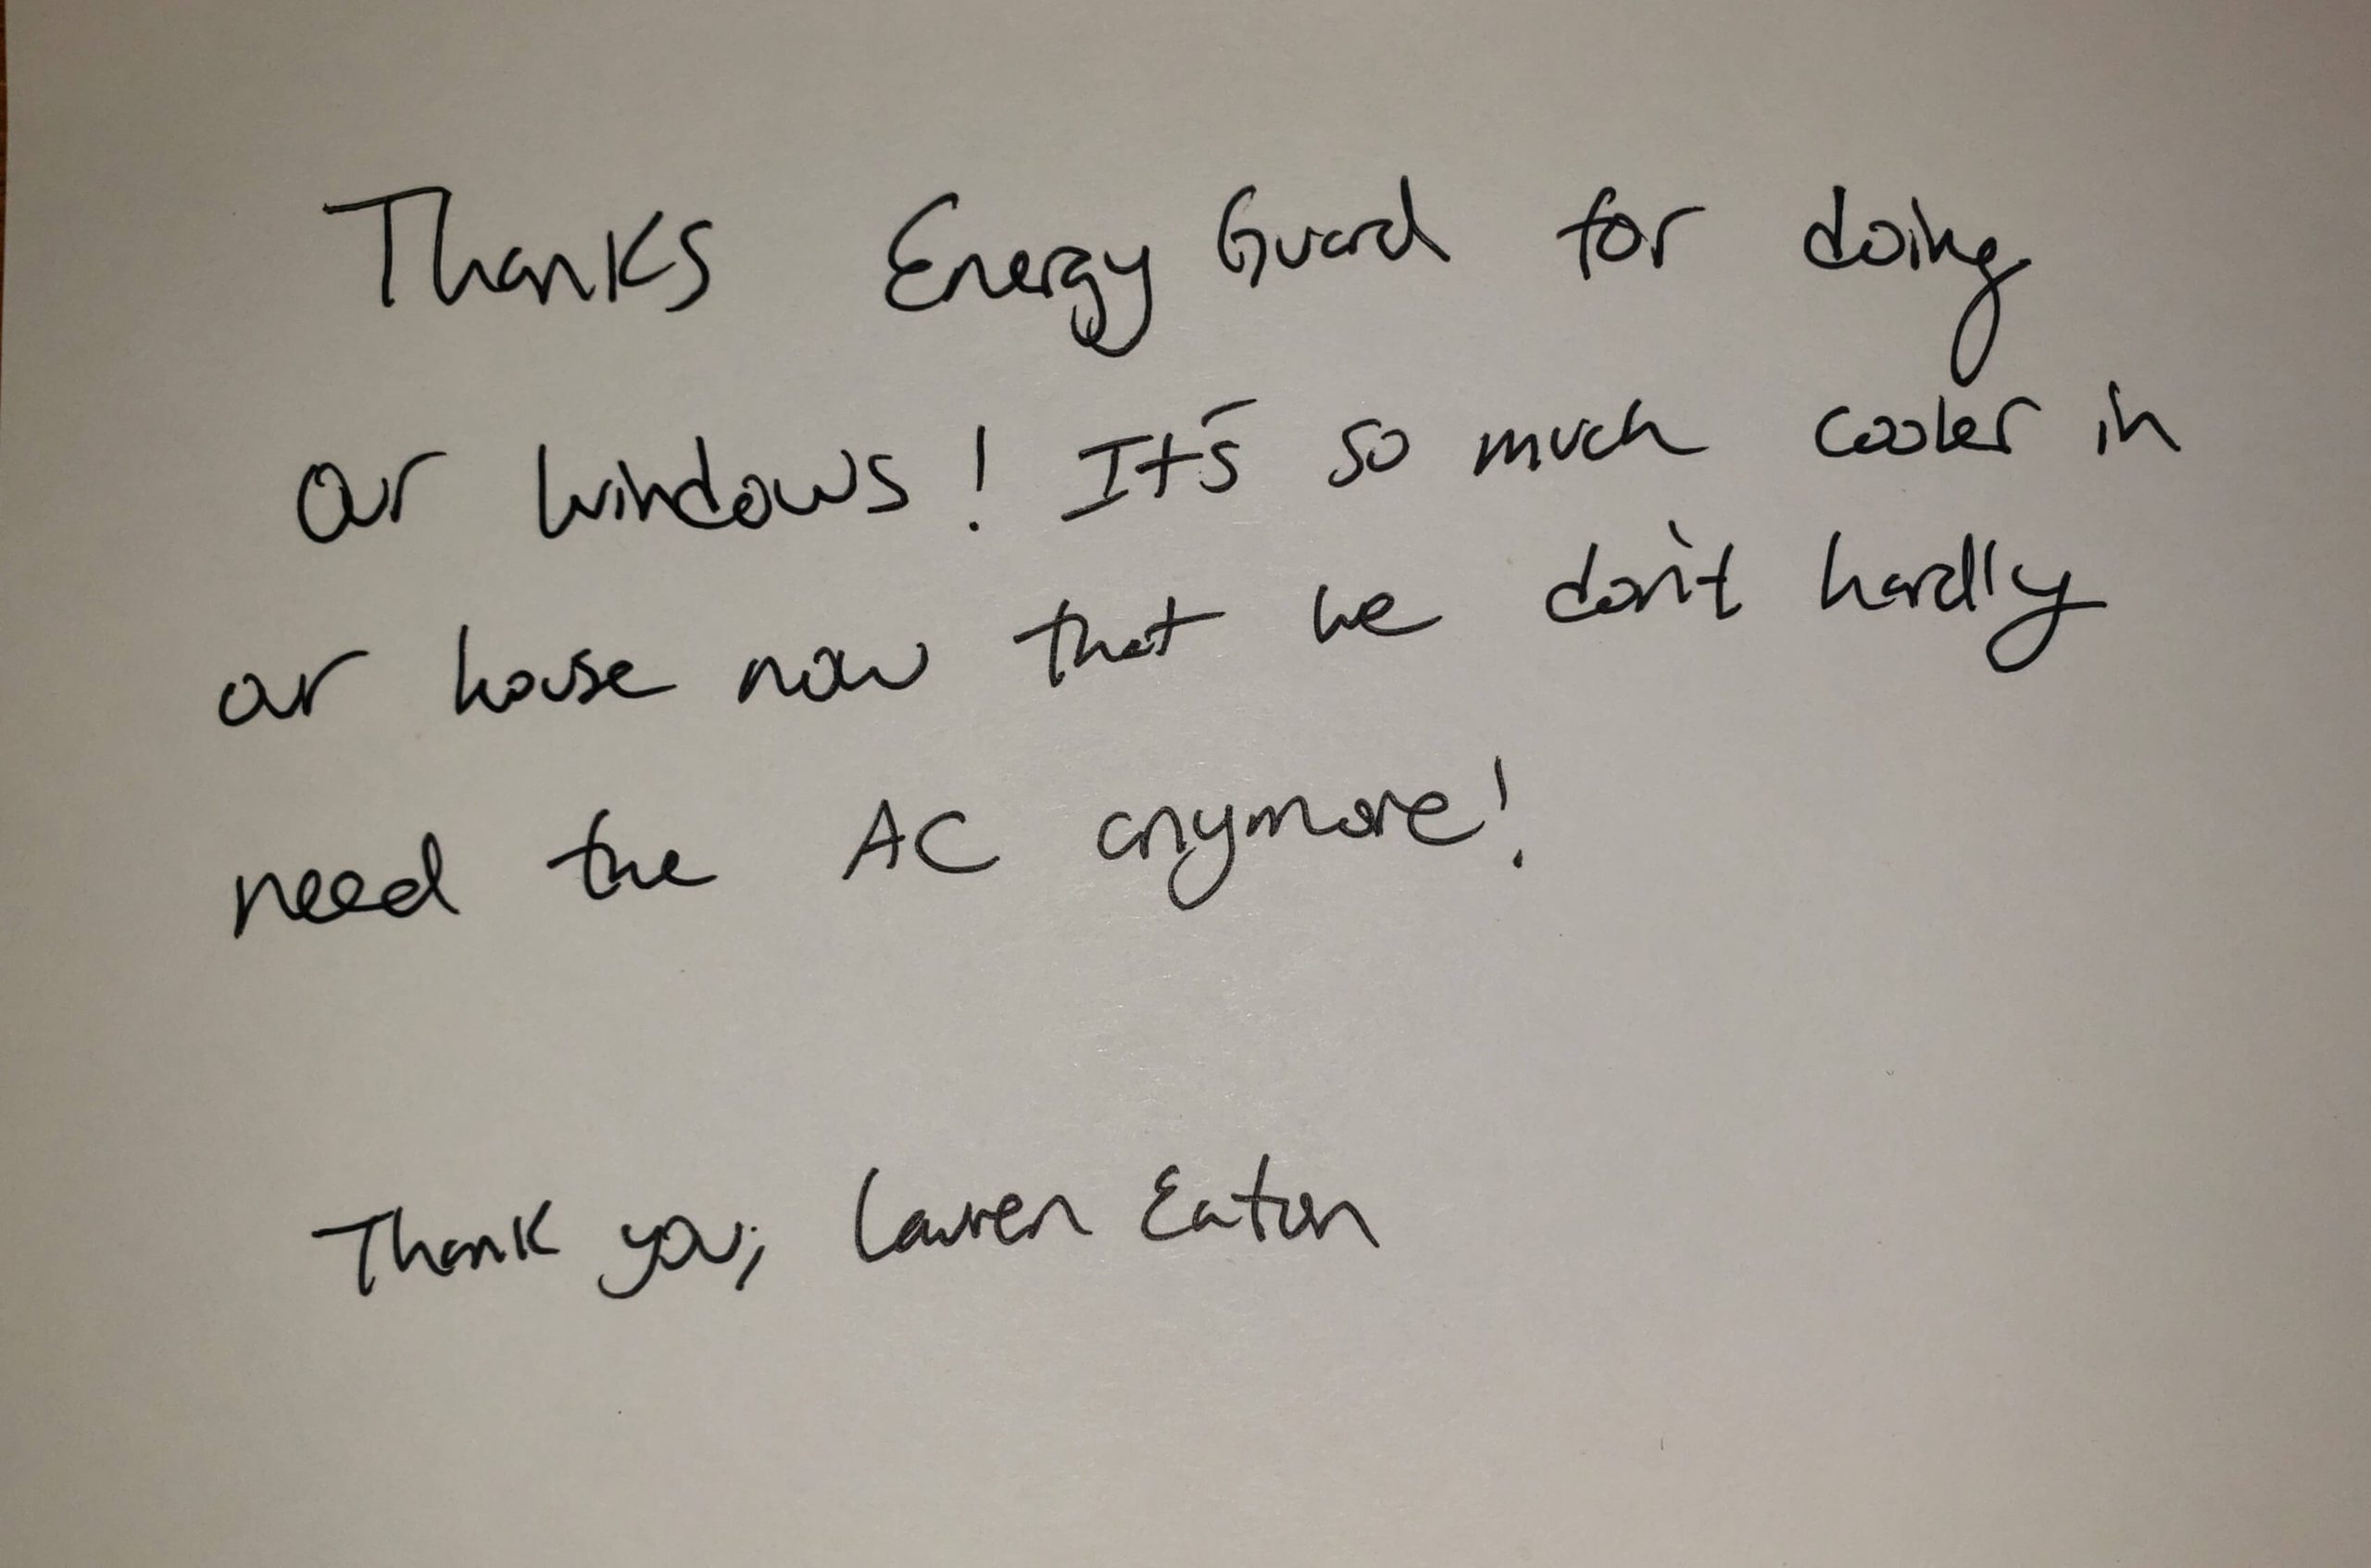 Thanks Energy Guard for doing
our windows! It's so much cooler in
our house now that we don't hardly
need the AC anymore!
Thank you, Lauren Eaton